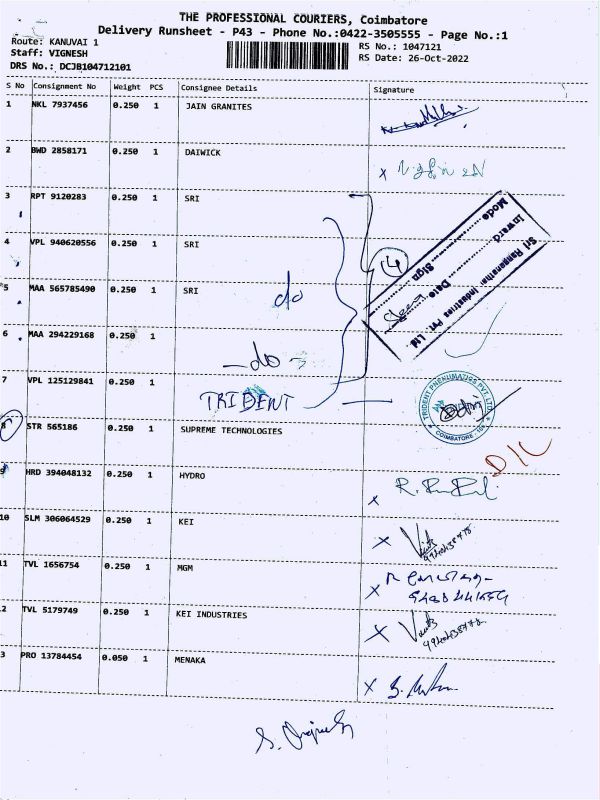 THE PROFESSIONAL COURIERS, Coimbatore
Delivery Runsheet - P43 - Phone No.:0422-3505555 - Page No.:1
Route: KANUVAI 1
Staff: VIGNESH
DRS No.: DCJB104712101
RS No.: 1047121
RS Date: 26-Oct-2022
S No Consignment No Weight PCS Consignee Details Signature
1 NKL 7937456 0.250 1 JAIN GRANITES
2 BWD 2858171 0.250 1 DAIWICK
3 RPT 9120283 0.250 1 SRI
4 VPL 940620556 0.250 1 SRI
5 MAA 565785490 0.250 1 SRI
do
14
Sri Ranganathar Industries Pvt. Ltd.
Inward
Mode
Date
Sign
6 MAA 294229168 0.250 1
-do-
7 VPL 125129841 0.250 1
TRIDENT
TRIDENT PNEUMATICS PVT. LTD.
COIMBATORE
8 STR 565186 0.250 1 SUPREME TECHNOLOGIES
D/L
9 HRD 394048132 0.250 1 HYDRO
10 SLM 306064529 0.250 1 KEI
11 TVL 1656754 0.250 1 MGM
2 TVL 5179749 0.250 1 KEI INDUSTRIES
3 PRO 13784454 0.050 1 MENAKA